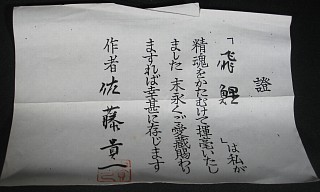 證
「鯉」は私が
精魂をかたむけて揮毫いたし
ました 末永くご愛蔵賜わり
ますれば幸甚に存じます
作者 佐藤貴一